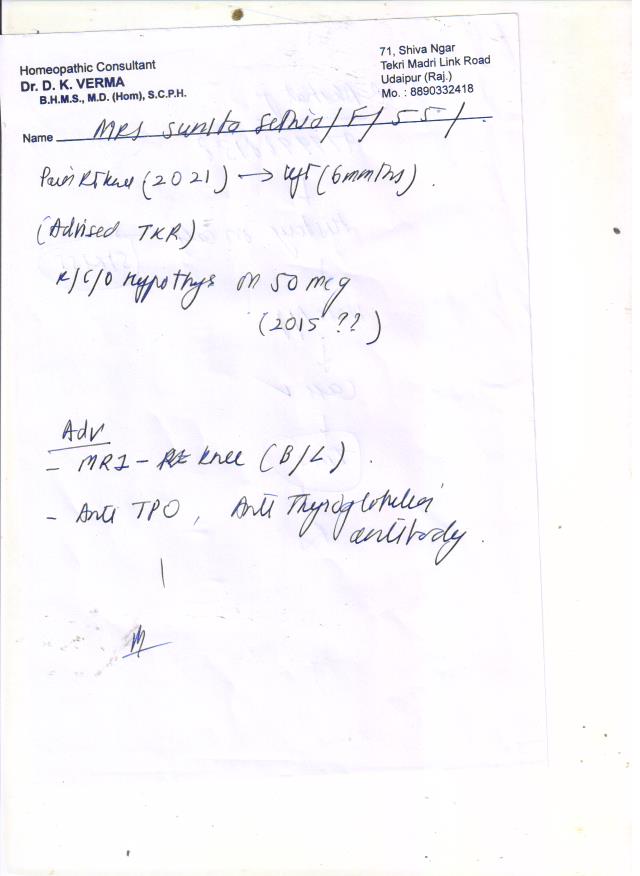 Homeopathic Consultant
Dr. D. K. VERMA
B.H.M.S., M.D. (Hom), S.C.P.H.
71, Shiva Ngar
Tekri Madri Link Road
Udaipur (Raj.)
Mo. : 8890332418
Name MRS Sunita Sethia/F/55/.
Pain Rt knee (2021) → left (6 mnths).
(Advised TKR)
K/C/O Hypothys on 50 mcg
(2015 ??)
Adv
- MRI - knee (B/L).
- Anti TPO, Anti Thyroglobulin
antibody.